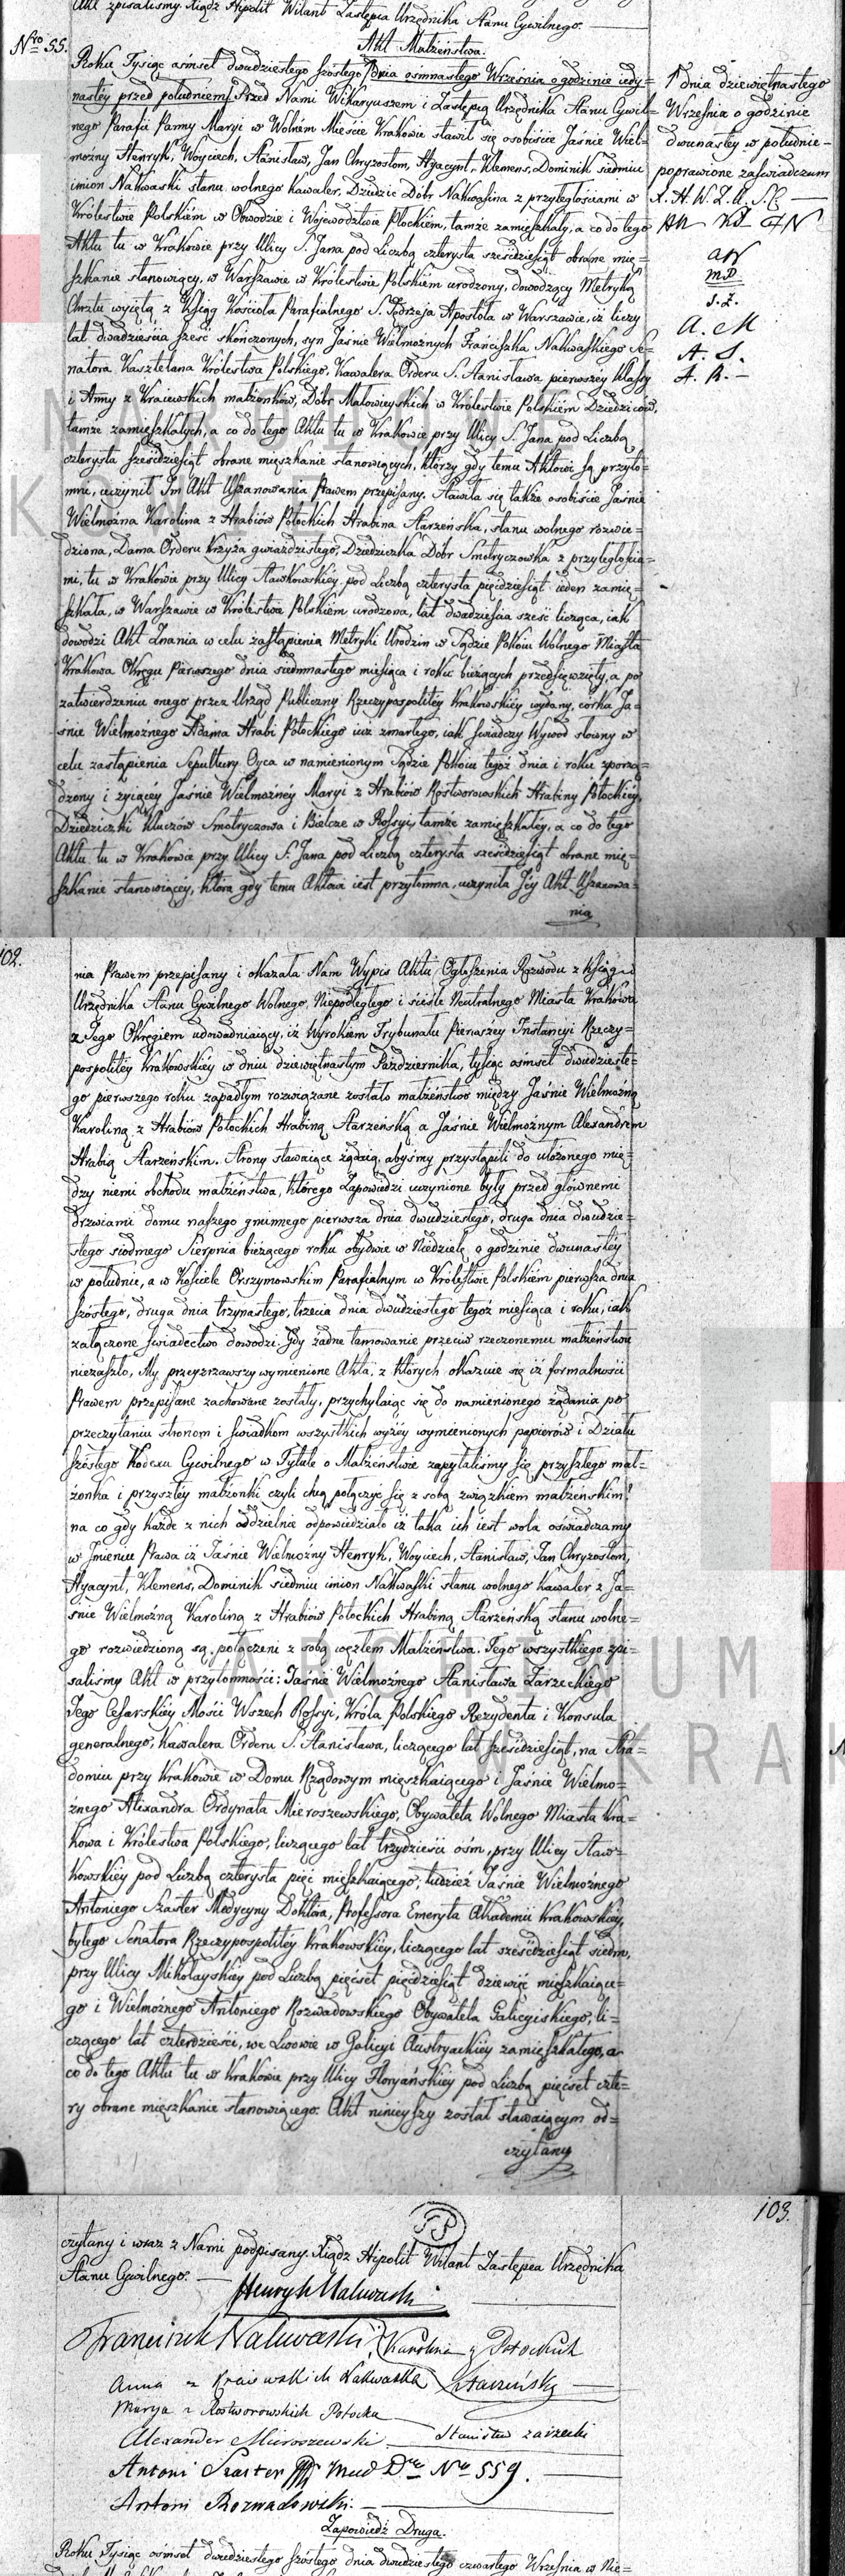 Akt zpisaliśmy Xiądz Hipolit Wilant Zastępca Urzędnika Stanu Cywilnego.
Nro 55.
Akt Małżeństwa.
Roku Tysiąc ośmset dwudziestego szóstego dnia ośmnastego Września o godzinie iedy=
nastey przed południem Przed Nami Wikaryuszem i Zastępcą Urzędnika Stanu Cywil=
nego Parafii Panny Maryi w Wolném Mieście Krakowie stawił się osobiście Jaśnie Wiel=
możny Henryk, Woyciech, Stanisław, Jan Chryzostom, Hyacynt, Klemens, Dominik siedmiu
imion Nakwaski stanu wolnego kawaler, Dziedzic Dóbr Nakwasina z przyległościami w
Królestwie Polskiém w Obwodzie i Województwie Płockiém, tamże zamięszkały, a co do tego
Aktu tu w Krakowie przy Ulicy S. Jana pod Liczbą czterysta sześćdziesiąt obrane mię=
szkanie stanowiący, w Warszawie w Królestwie Polskiém urodzony, dowodzący Metryką
Chrztu wyiętą z Ksiąg Kościoła Parafialnego S. Jędrzeja Apostoła w Warszawie, iż liczy
lat dwadzieścia sześć skończonych, syn Jaśnie Wielmożnych Franciszka Nakwaskiego Se=
natora Kasztelana Królestwa Polskiego, Kawalera Orderu S. Stanisława pierwszey klassy
i Anny z Kraiewskich małżonków, Dóbr Małowieyskich w Królestwie Polskiém Dziedziców,
tamże zamięszkałych, a co do tego Aktu tu w Krakowie przy Ulicy S. Jana pod Liczbą
czterysta sześćdziesiąt obrane mięszkanie stanowiących, którzy gdy temu Aktowi są przyto=
mni, uczynił Im Akt Uszanowania Prawem przepisany. Stawiła się także osobiście Jaśnie
Wielmożna Karolina z Hrabiów Potockich Hrabina Starzeńska, stanu wolnego rozwie=
dziona, Dama Orderu Krzyża gwiaździstego, Dziedziczka Dóbr Smotryczowka z przyległościa=
mi, tu w Krakowie przy Ulicy Sławkowskiéy, pod Liczbą czterysta pięćdziesiąt ieden zamię=
szkała, w Warszawie w Królestwie Polskiém urodzona, lat dwadzieścia sześć licząca, iak
dowodzi Akt Znania w celu zastąpienia Metryki Urodzin w Sądzie Pokoiu Wolnego Miasta
Krakowa Okręgu Pierwszego dnia siedmnastego miesiąca i roku bieżących przedsięwzięty, a po
zatwierdzeniu onego przez Urząd Publiczny Rzeczypospolitéy Krakowskiéy wydany, córka Ja=
śnie Wielmożnego Adama Hrabi Potockiego iuż zmarłego, iak świadczy Wywód słowny w
celu zastąpienia Sepultury Oyca w namienionym Sądzie Pokoiu tegoż dnia i roku zporzą=
dzony i żyiącéy Jaśnie Wielmożnéy Maryi z Hrabiów Rostworowskich Hrabiny Potockiéy,
Dziedziczki Kluczów Smotryczowa i Bielcze w Rossyi, tamże zamięszkałéy, a co do tego
Aktu tu w Krakowie przy Ulicy S. Jana pod Liczbą czterysta sześćdziesiąt obrane mię=
szkanie stanowiącey, która gdy temu Aktowi iest przytomna, uczyniła Jéy Akt Uszanowa=
nia
dnia dziewiętnastego
Września o godzinie
dwunastey w południe -
poprawione zaświadczam
X. H. W. Z. U. S. C.
HN KS FN
AN
MP
S. Z.
A. M
A. S.
A. R.
102.
nia Prawem przepisany i okazała Nam Wypis Aktu Ogłoszenia Rozwodu z Ksiąg
Urzędnika Stanu Cywilnego Wolnego, Niepodległego i ściśle Neutralnego Miasta Krakowa
z Jego Okręgiem udowadniaiący, iż Wyrokiem Trybunału Pierwszey Instancyi Rzeczy=
pospolitéy Krakowskiéy w dniu dziewiętnastym Października, tysiąc ośmset dwudzieste=
go pierwszego roku zapadłym rozwiązane zostało małżeństwo między Jaśnie Wielmożną
Karoliną z Hrabiów Potockich Hrabiną Starzeńską a Jaśnie Wielmożnym Alexandrem
Hrabią Starzeńskim. Strony stawaiące żądaią, abyśmy przystąpili do ułożonego mię=
dzy niemi obchodu małżeństwa, którego Zapowiedzi uczynione były przed głównemi
drzwiami domu naszego gminnego pierwsza dnia dwudziestego, druga dnia dwudzie=
stego siódmego Sierpnia bieżącego roku obydwie w Niedzielę o godzinie dwunastéy
w południe, a w Kościele Orszymowskim Parafialnym w Królestwie Polskiém pierwsza dnia
szóstego, druga dnia trzynastego, trzecia dnia dwudziestego tegoż miesiąca i roku, iak
załączone świadectwo dowodzi. Gdy żadne tamowanie przeciw rzeczonemu małżeństwu
niezaszło, My przeyrzawszy wymienione Akta, z których okazuie się iż formalności
Prawem przepisane zachowane zostały, przychylaiąc się do namienionego żądania po
przeczytaniu stronom i świadkom wszystkich wyżéy wymienionych papierów i Działu
szóstego Kodexu Cywilnego w Tytule o Małżeństwie zapytaliśmy się przyszłego mał=
żonka i przyszłéy małżonki czyli chcą połączyć się z sobą związkiem małżeńskim?
na co gdy każde z nich oddzielnie odpowiedziało iż taka ich iest wola oświadczamy
w Imieniu Prawa iż Jaśnie Wielmożny Henryk, Woyciech, Stanisław, Jan Chryzostom,
Hyacynt, Klemens, Dominik siedmiu imion Nakwaski stanu wolnego kawaler z Ja=
śnie Wielmożną Karoliną z Hrabiów Potockich Hrabiną Starzeńską stanu wolne=
go rozwiedzioną są połączeni z sobą węzłem Małżeństwa. Tego wszystkiego zpi=
saliśmy Akt w przytomności: Jaśnie Wielmożnego Stanisława Zarzeckiego
Jego Cesarskiéy Mości Wszech Rossyi, Króla Polskiego Rezydenta i Konsula
generalnego, Kawalera Orderu S. Stanisława, liczącego lat sześćdziesiąt, na Stra=
domiu przy Krakowie w Domu Rządowym mięszkaiącego i Jaśnie Wielmo=
żnego Alexandra Ordynata Mieroszewskiego, Obywatela Wolnego Miasta Kra=
kowa i Królestwa Polskiego, liczącego lat trzydzieści ośm, przy Ulicy Sław=
kowskiéy pod Liczbą czterysta pięć mięszkaiącego; tudzież Jaśnie Wielmożnego
Antoniego Szaster Medycyny Doktora, Professora Emeryta Akademii Krakowskiéy,
byłego Senatora Rzeczypospolitéy Krakowskiéy, liczącego lat sześćdziesiąt siedm,
przy Ulicy Mikołayskiéy pod Liczbą pięćset pięćdziesiąt dziewięć mięszkaiące=
go i Wielmożnego Antoniego Rozwadowskiego Obywatela Galicyiskiego, li=
czącego lat czterdzieści, we Lwowie w Galicyi Austryackiéy zamięszkałego, a
co do tego Aktu tu w Krakowie przy Ulicy Floryańskiéy pod Liczbą pięćset czte=
ry obrane mięszkanie stanowiącego. Akt ninieyszy został stawaiącym od=
czytany
103.
czytany i wraz z Nami podpisany. Xiądz Hipolit Wilant Zastępca Urzędnika
Stanu Cywilnego.
Henryk Nakwaski
Franciszek Nakwaski, Karolina z Potockich
Anna z Kraiewskich Nakwaska Starzeńska
Marya z Rostworowskich Potocka
Alexander Mieroszewski Stanisław Zarzecki
Antoni Szaster Med Dr Nro 559.
Antoni Rozwadowski.
Zapowiedź Druga.
Roku Tysiąc ośmset dwudziestego szóstego dnia dwudziestego czwartego Września w Nie=